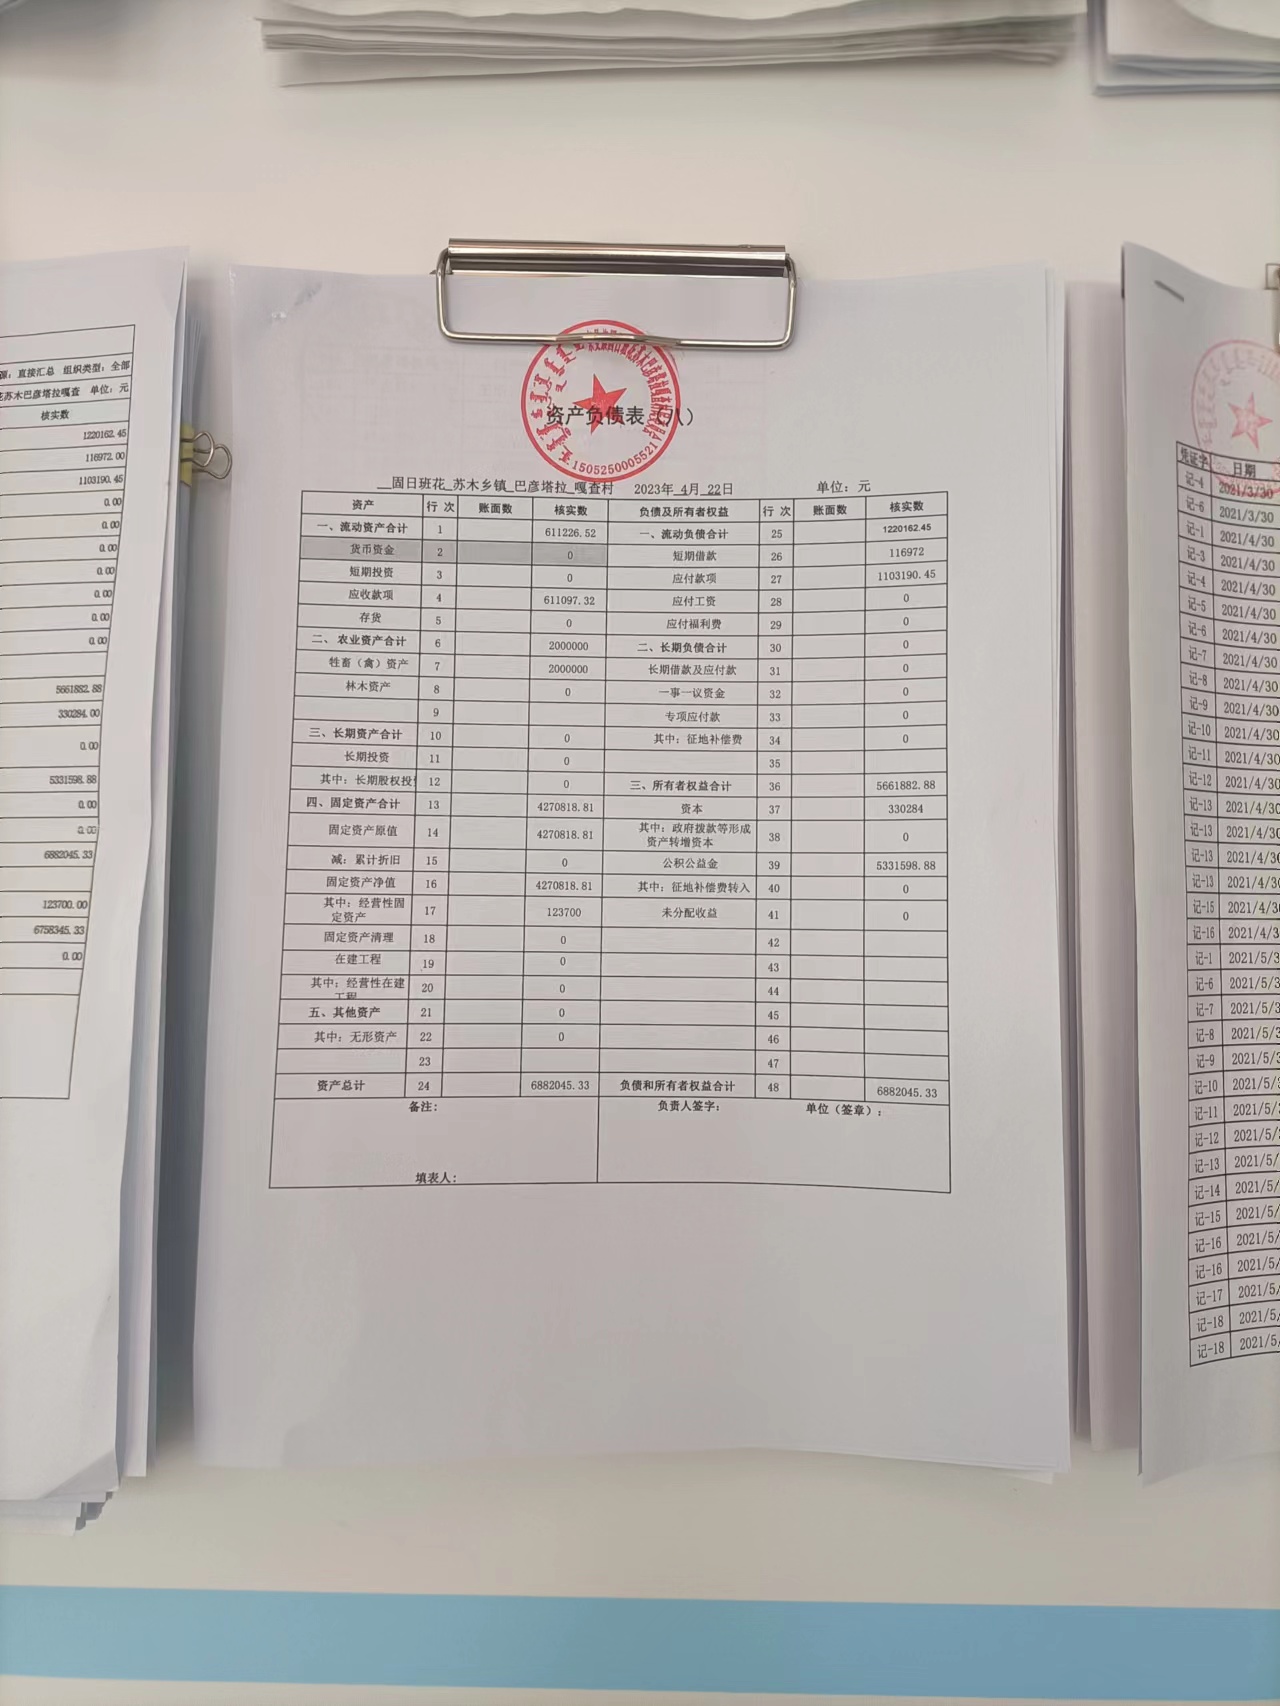 源：直接汇总 组织类型：全部
花苏木巴彦塔拉嘎查 单位：元
核实数
1220162.45
116972.00
1103190.45
0.00
0.00
0.00
0.00
0.00
0.00
0.00
5661882.88
330284.00
0.00
5331598.88
0.00
0.00
6882045.33
123700.00
6758345.33
0.00
1505250005521
资产负债表（八）
固日班花_苏木乡镇_巴彦塔拉_嘎查村 2023年_4月_22日 单位：元
资产 行次 账面数 核实数 负债及所有者权益 行次 账面数 核实数
一、流动资产合计 1 611226.52 一、流动负债合计 25 1220162.45
货币资金 2 0 短期借款 26 116972
短期投资 3 0 应付款项 27 1103190.45
应收款项 4 611097.32 应付工资 28 0
存货 5 0 应付福利费 29 0
二、农业资产合计 6 2000000 二、长期负债合计 30 0
牲畜（禽）资产 7 2000000 长期借款及应付款 31 0
林木资产 8 0 一事一议资金 32 0
9 专项应付款 33 0
三、长期资产合计 10 0 其中：征地补偿费 34 0
长期投资 11 0 35
其中：长期股权投 12 0 三、所有者权益合计 36 5661882.88
四、固定资产合计 13 4270818.81 资本 37 330284
固定资产原值 14 4270818.81 其中：政府拨款等形成资产转增资本 38 0
减：累计折旧 15 0 公积公益金 39 5331598.88
固定资产净值 16 4270818.81 其中：征地补偿费转入 40 0
其中：经营性固定资产 17 123700 未分配收益 41 0
固定资产清理 18 0 42
在建工程 19 0 43
其中：经营性在建工程 20 0 44
五、其他资产 21 0 45
其中：无形资产 22 0 46
23 47
资产总计 24 6882045.33 负债和所有者权益合计 48 6882045.33
备注： 负责人签字： 单位（签章）：
填表人：
凭证字 日期
记-4 2021/3/30
记-6 2021/3/30
记-1 2021/4/30
记-3 2021/4/30
记-4 2021/4/30
记-5 2021/4/30
记-6 2021/4/30
记-7 2021/4/30
记-8 2021/4/30
记-9 2021/4/30
记-10 2021/4/30
记-11 2021/4/30
记-12 2021/4/30
记-13 2021/4/30
记-13 2021/4/30
记-13 2021/4/30
记-13 2021/4/30
记-15 2021/4/30
记-16 2021/4/3
记-1 2021/5/3
记-6 2021/5/3
记-7 2021/5/3
记-8 2021/5/3
记-9 2021/5/3
记-10 2021/5/
记-11 2021/5/
记-12 2021/5/
记-13 2021/5/
记-14 2021/5/
记-15 2021/5/
记-16 2021/5/
记-16 2021/5/
记-17 2021/5/
记-18 2021/5/
记-18 2021/5/